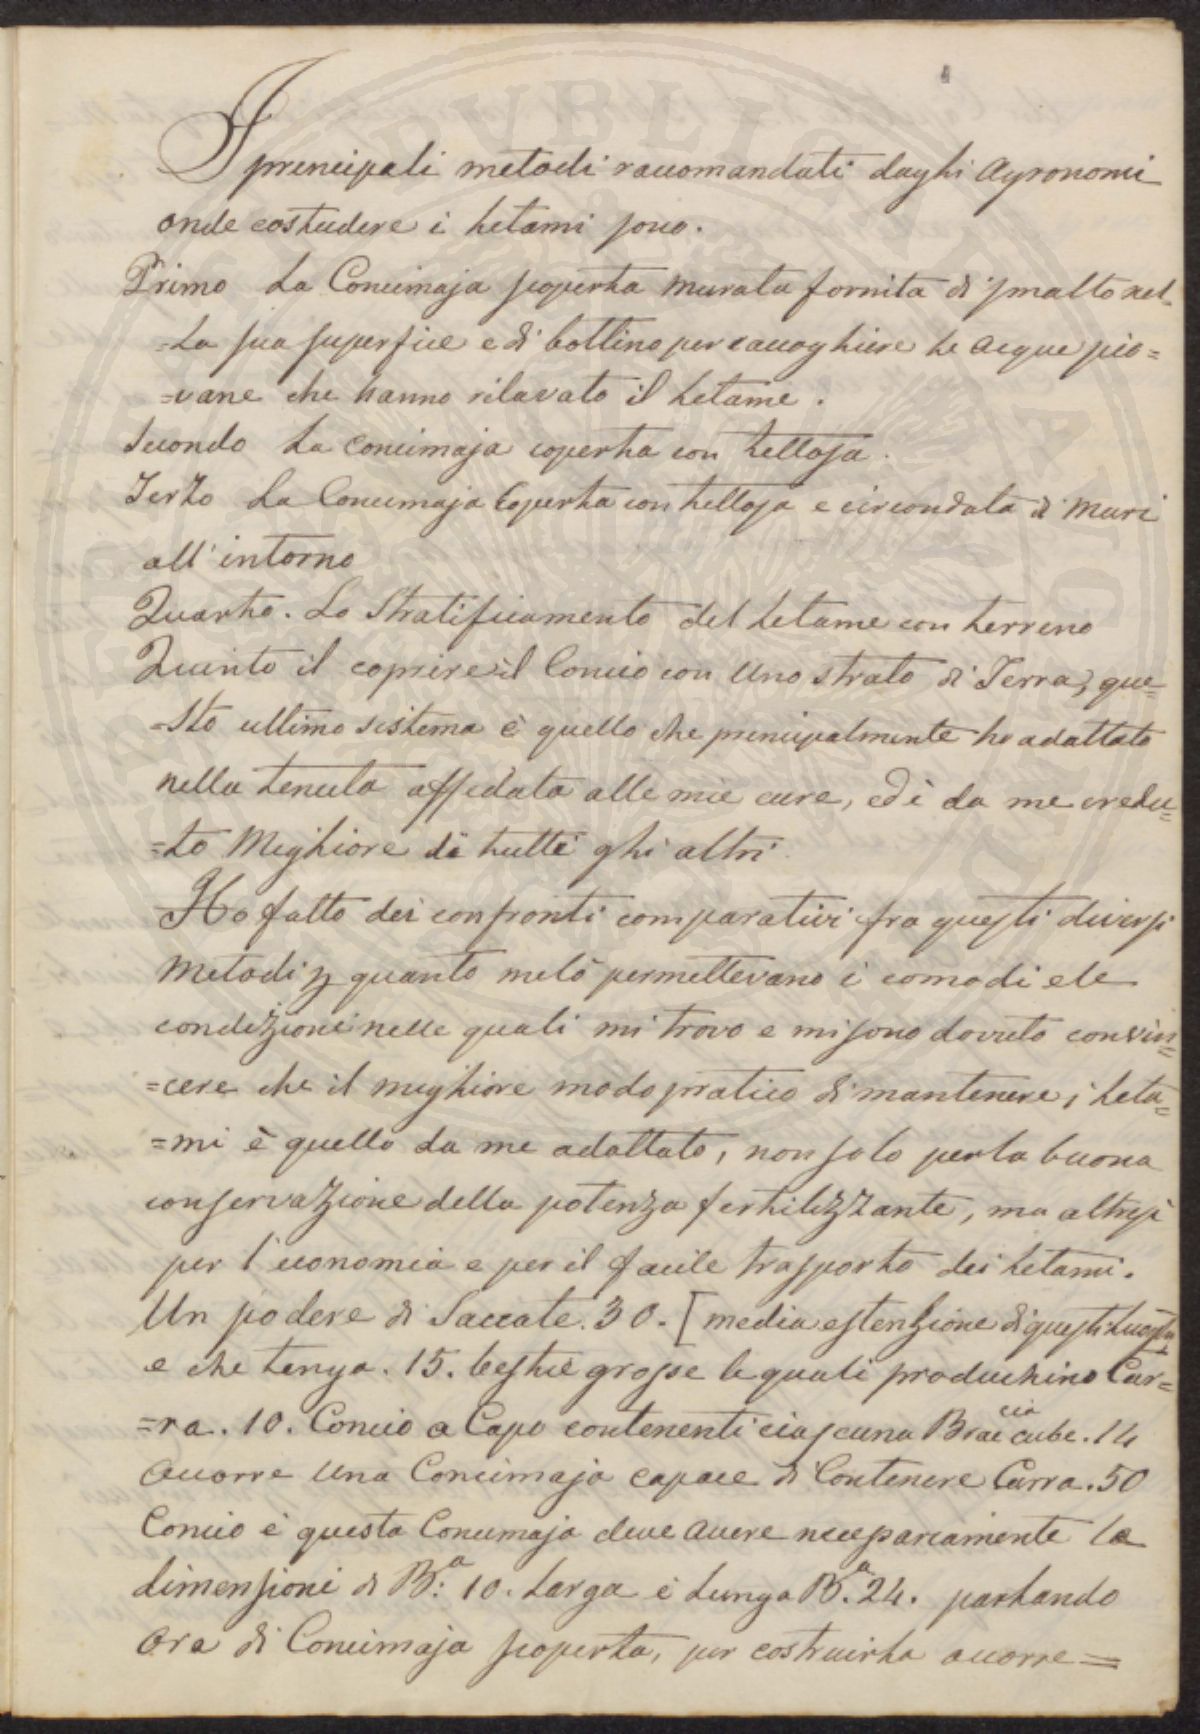 I principali metodi raccomandati dagli Agronomi
onde costudere i letami sono.
Primo La Concimaja scoperta murata fornita di smalto nel-
=la sua superfice e di bottino per raccogliere le acque pio=
=vane che hanno rilavato il letame.
Secondo La Concimaja coperta con tettoja.
Terzo La Concimaja Coperta con tettoja e circondata di Muri
all'intorno
Quarto. Lo Stratificamento del letame con terreno
Quinto il coprire il Concio con Uno strato di Terra, que=
=sto ultimo sistema è quello che principalmente ho adattato
nella tenuta affidata alle mie cure, ed è da me credu=
=to Megliore di tutti gli altri
Ho fatto dei confronti comparativi fra questi diversi
Metodi p quanto melò permettevano i comodi ele
condizioni nelle quali mi trovo e mi sono dovuto convin=
=cere che il megliore modo pratico di mantenere i leta=
=mi è quello da me adattato, non solo perla buona
conservazione della potenza fertilizzante, ma altresì
per l'economia e per il facile trasporto dei letami.
Un podere di Saccate. 30. [media estenzione di questi Luoghi
e che tenga. 15. bestie grosse le quali produchino Car=
=ra. 10. Concio a Capo contenenti ciascuna Braccia cube. 14
Occorre Una Concimaja capace di Contenere Carra. 50
Concio è questa Concimaja deve avere necessariamente le
dimensioni di B.a 10. Larga è Lunga B.a 24. parlando
Ora di Concimaja scoperta, per costruirla occorre=